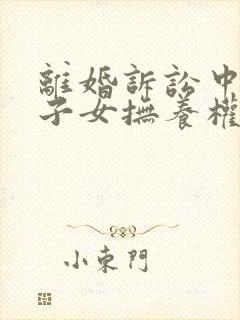 離婚訴訟中
子女撫養權
小東門